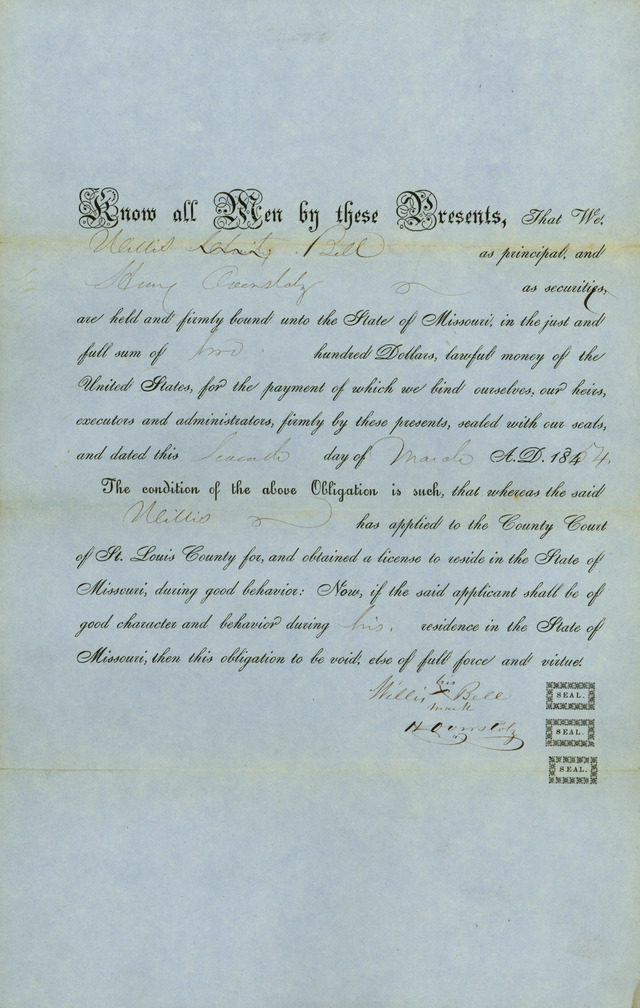 Know all Men by these Presents, That We,
Willis Bell as principal, and
Henry Overstolz as securities,
are held and firmly bound unto the State of Missouri, in the just and
full sum of two hundred Dollars, lawful money of the
United States, for the payment of which we bind ourselves, our heirs,
executors and administrators, firmly by these presents, sealed with our seals,
and dated this Second day of March A.D. 1854.
The condition of the above Obligation is such, that whereas the said
Willis has applied to the County Court
of St. Louis County for, and obtained a license to reside in the State of
Missouri, during good behavior: Now, if the said applicant shall be of
good character and behavior during his. residence in the State of
Missouri, then this obligation to be void, else of full force and virtue.
Willis his X mark Bell SEAL.
H Overstolz SEAL.
SEAL.